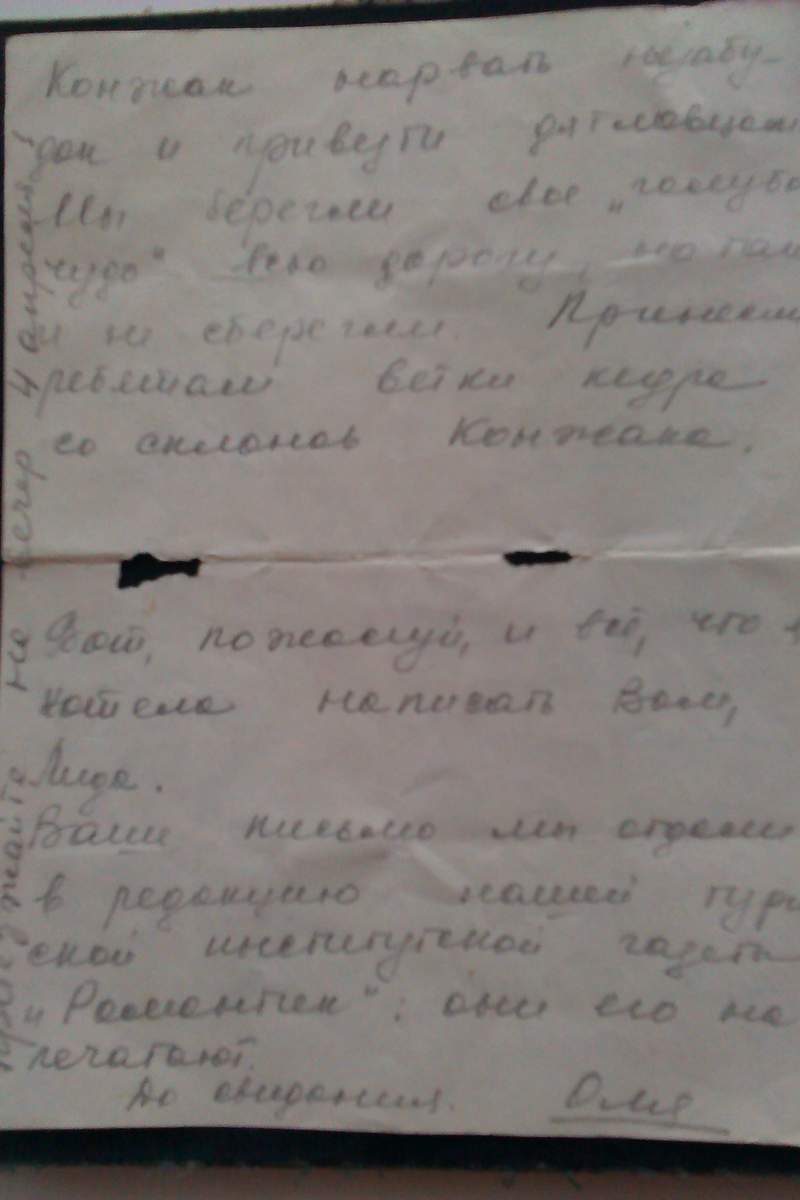 Конжак нарвать незабу-
док и привезти дятловцам.
Мы берегли свое „голубое
чудо" всю дорогу, но так
и не сберегли. Принесли
ребятам ветки кедра
со склонов Конжака.
Вот, пожалуй, и всё, что я
хотела написать Вам,
Лида.
Ваше письмо мы отдали
в редакцию нашей тури
ской институтской газеты
„Романтик": они его на
печатают.
До свидания. Оля
Приезжайте на вечер 4 апреля!